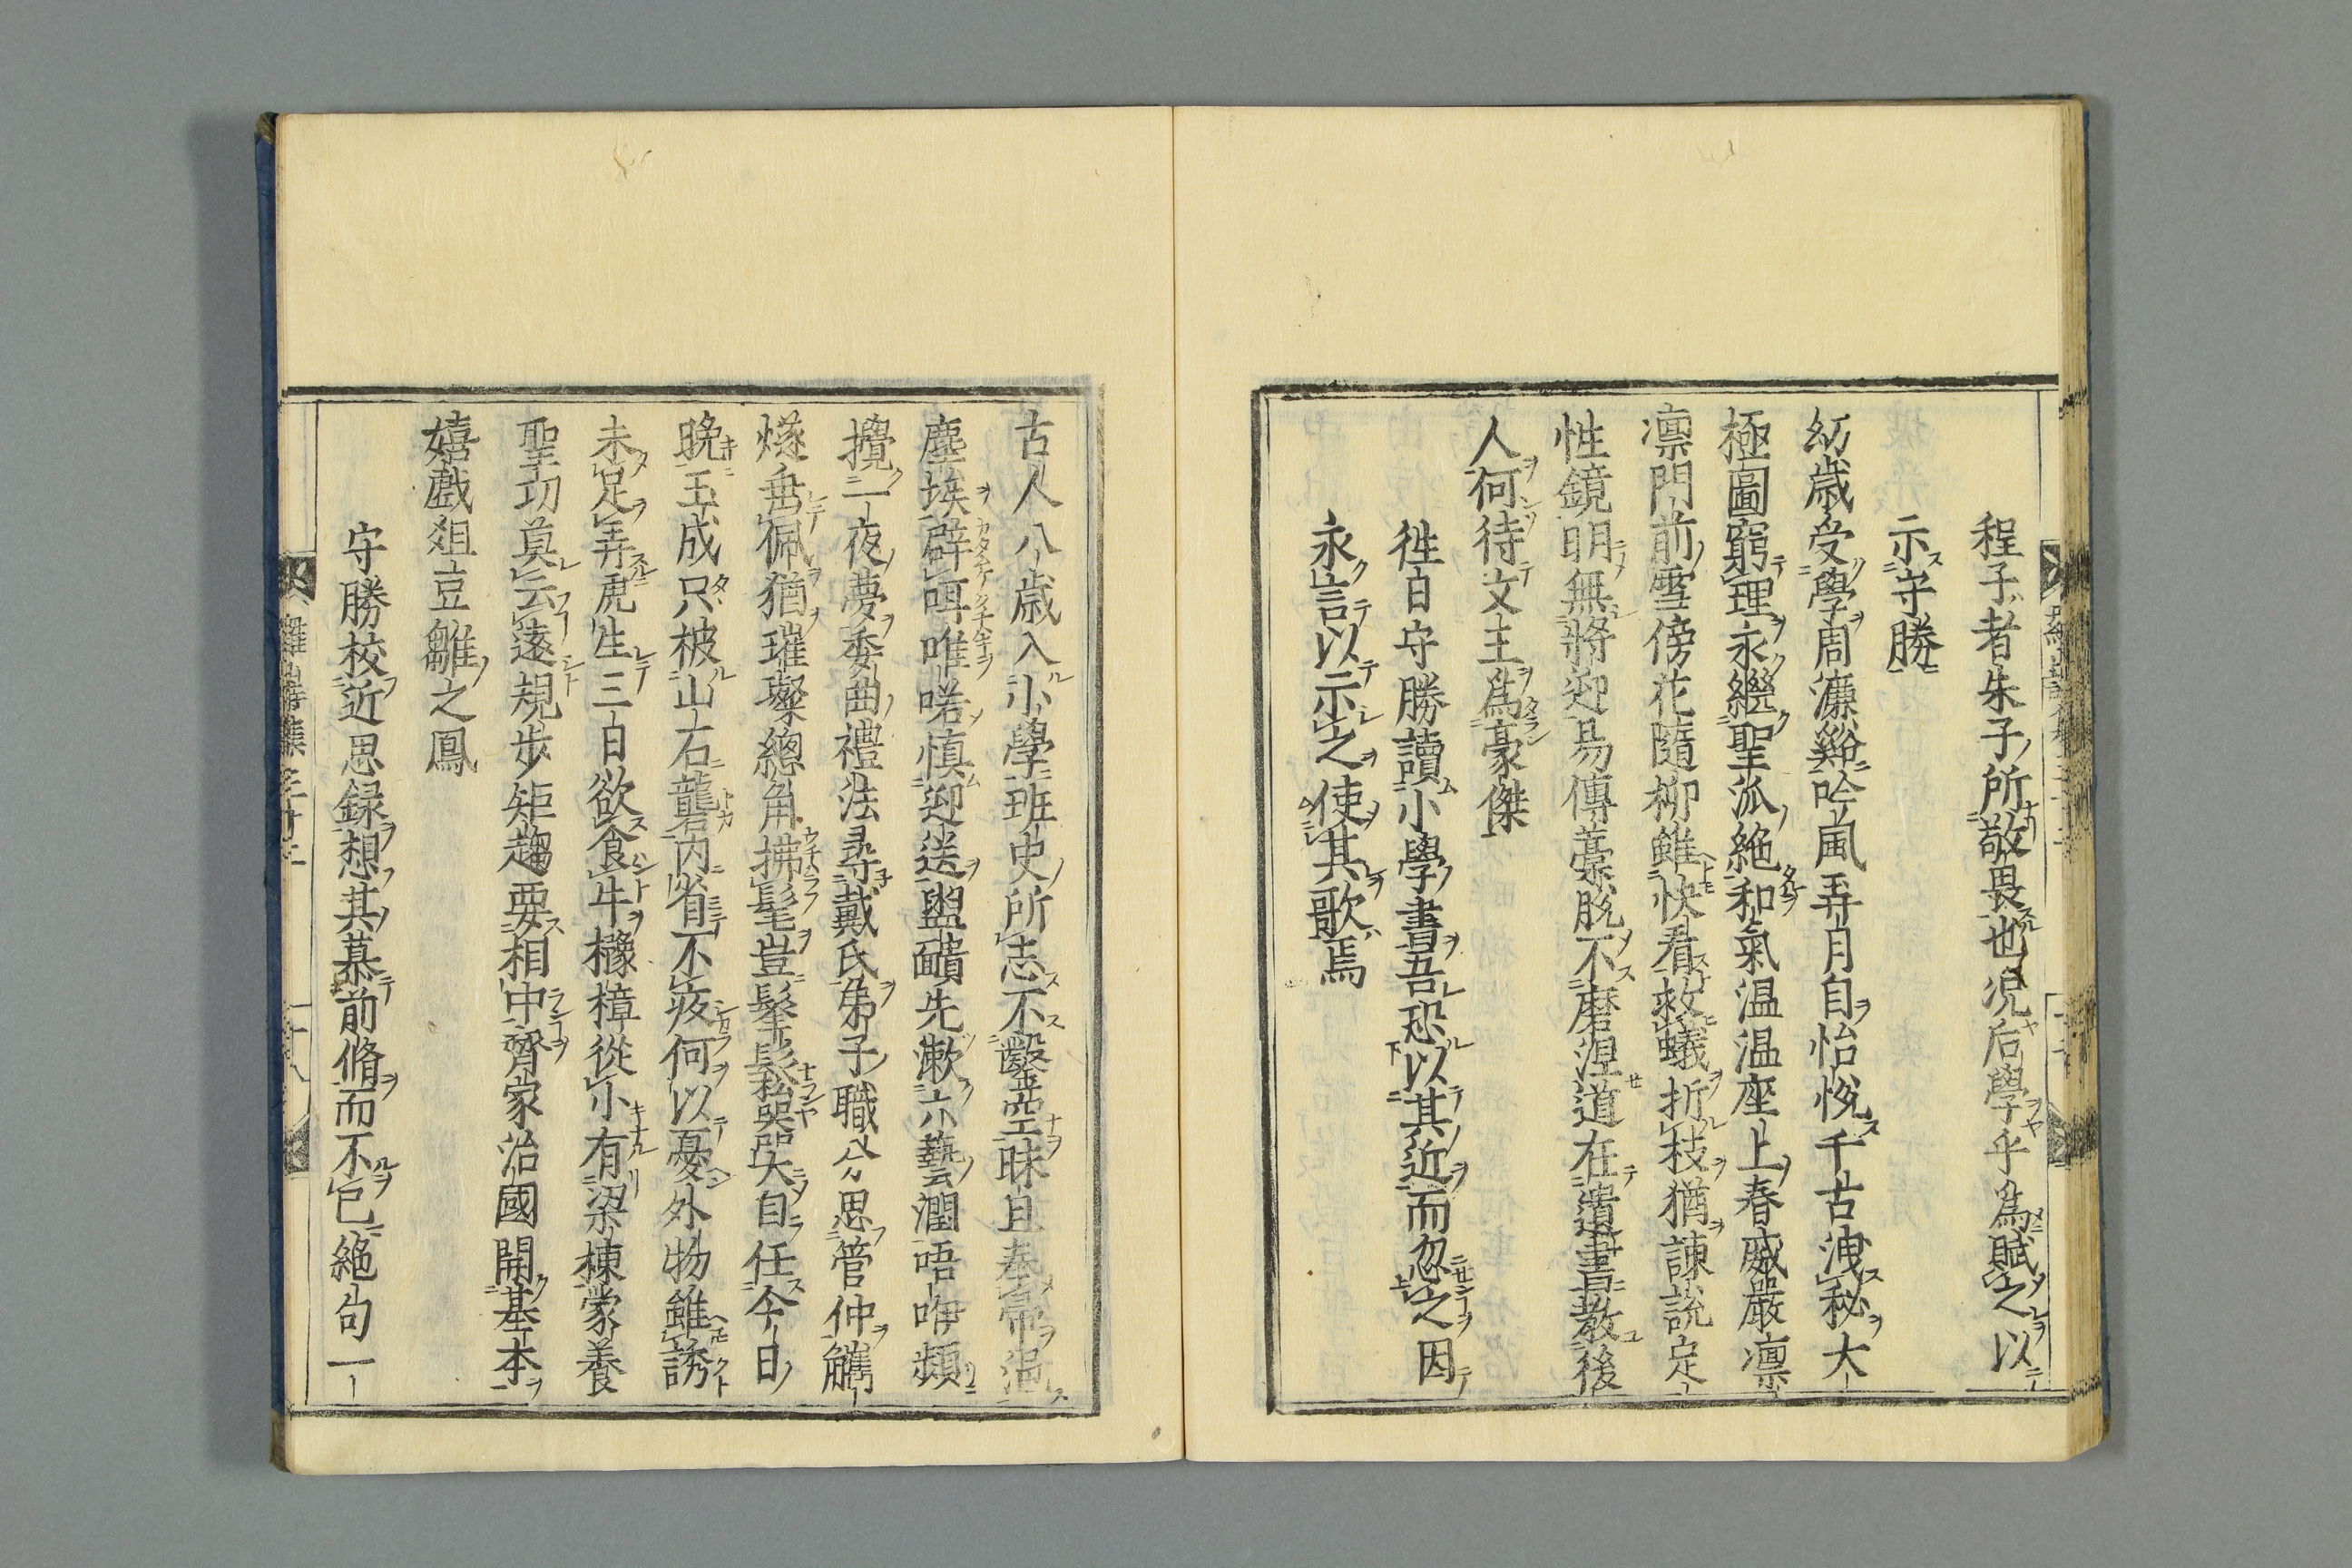 程子者朱子所敬畏也况后學乎爲賦之以
示守勝
幼歳受學周濂谿吟風弄月自怡悅千古洩秘大
極圖窮理永繼聖派絶和氣温温座上春威嚴凛
凛門前雪傍花隨柳雖快看救蟻折枝猶諫説定
性鏡明無將迎易傳藁脱不磨涅道在遺書教後
人何待文王爲豪傑
徃日守勝讀小學書吾恐以其近而忽之因
永言以示之使其歌焉
古人八歳入小學班史所志不鑿空昧旦奉帚
塵埃辟咡唯喏慎迎送盥靧先漱六藝潤唔咿頻
攪一夜夢委曲禮法尋戴氏弟子職分思管仲觿
燧垂佩猶璀璨總角拂髦豈髼鬆哭大自任今日
晩玉成只被山石礱内省不疚何以憂外物雖誘
未足弄虎生三日欲食牛櫲樟從小有梁棟蒙養
聖功莫云遠規步矩趨要相中齊家治國開基本
嬉戯俎豆雛之鳳
守勝校近思録想其慕前脩而不已絶句一
羅山詩集 三十二